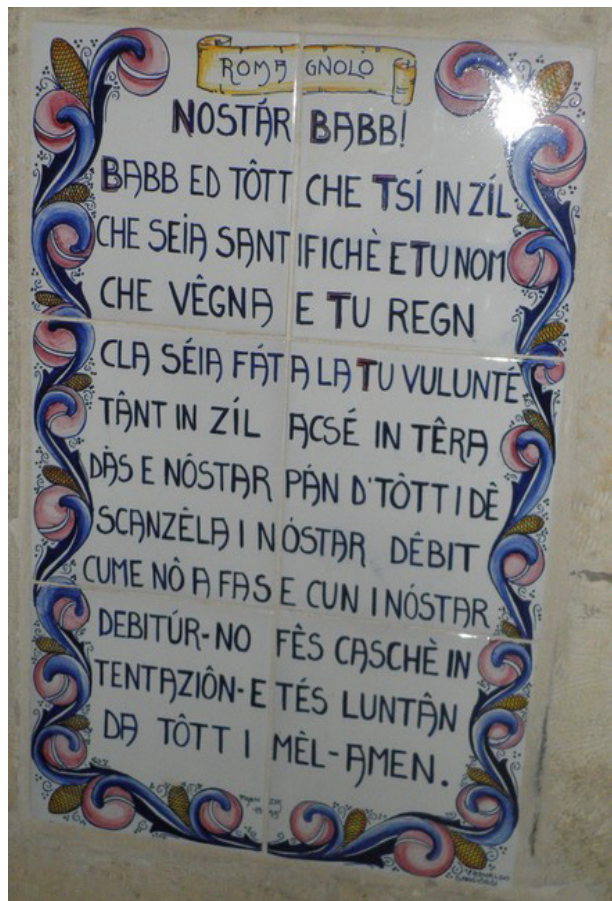 ROMAGNOLO
NOSTÁR BABB!
BABB ED TÔTT CHE TSÍ IN ZÍL
CHE SEIA SANTIFICHÈ E TU NOM
CHE VÊGNA E TU REGN
CLA SÉIA FÁTA LA TU VULUNTÉ
TÂNT IN ZÍL ACSÉ IN TÊRA
DÀS E NÓSTAR PÁN D'TÔTT I DÊ
SCANZÈLA I NÓSTAR DÊBIT
CUME NÔ A FAS E CUN I NÓSTAR
DEBITÚR-NO FÊS CASCHÈ IN
TENTAZIÔN-E TÉS LUNTÂN
DA TÔTT I MÈL-AMEN.